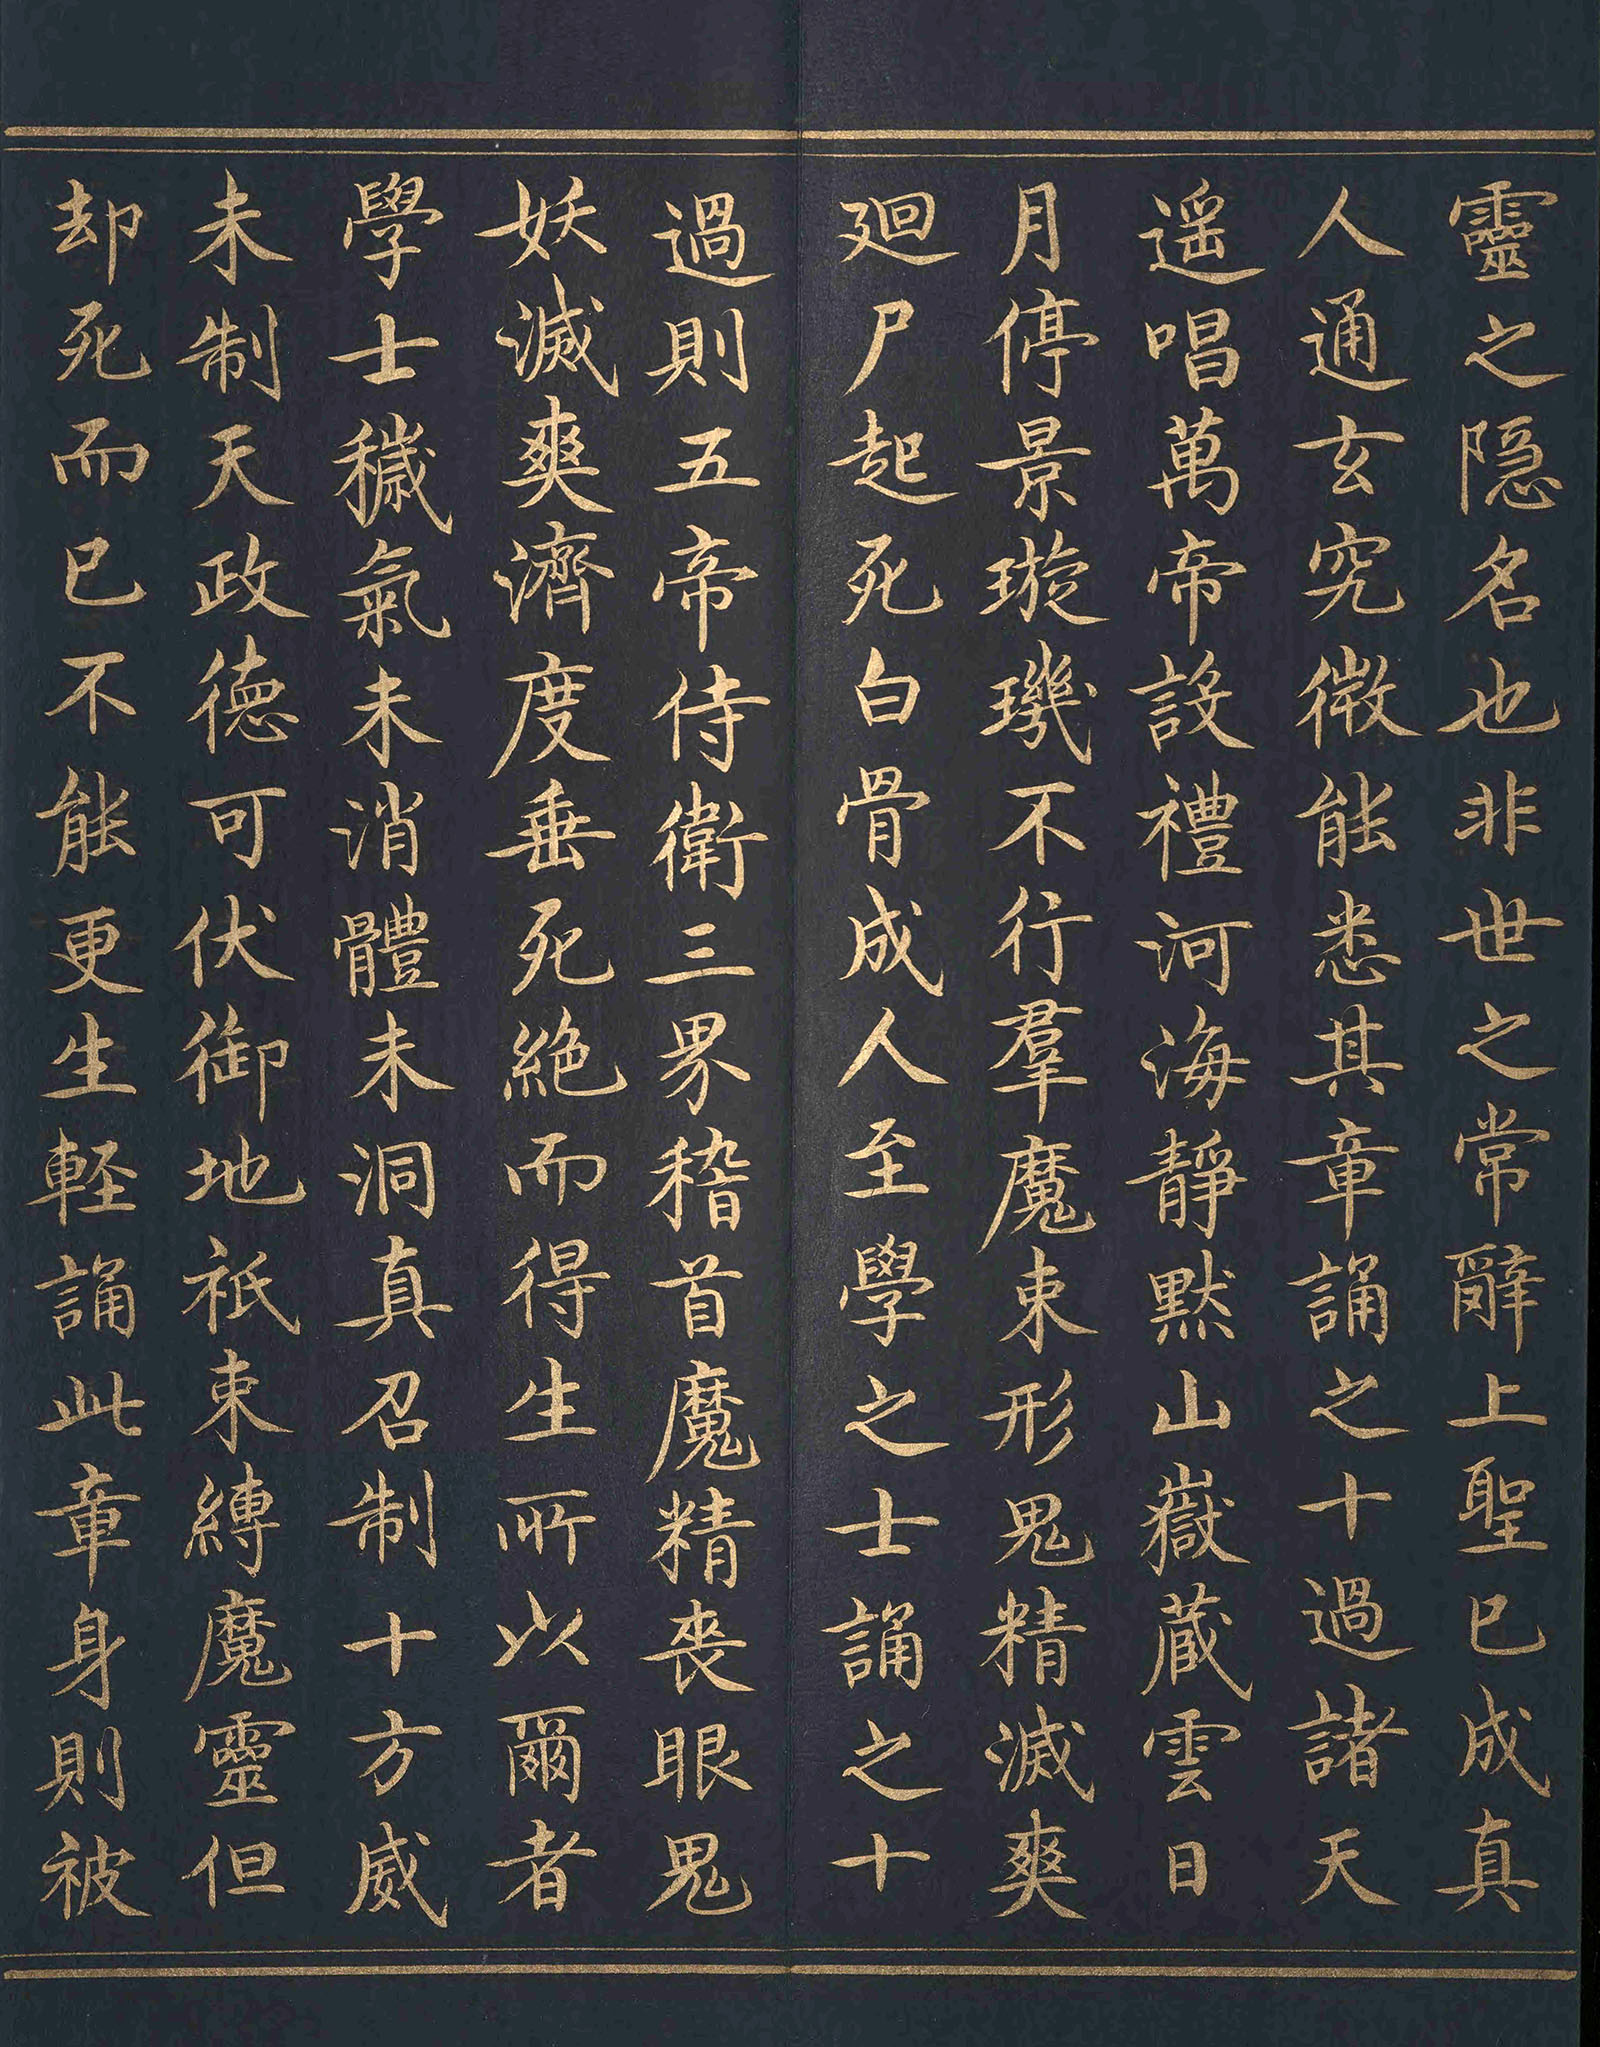 靈之隱名也非世之常辭上聖已成真
人通玄究微能悉其章誦之十過諸天
遥唱萬帝設禮河海靜默山嶽藏雲日
月停景璇璣不行羣魔束形鬼精滅爽
廻尸起死白骨成人至學之士誦之十
過則五帝侍衛三界稽首魔精喪眼鬼
妖滅爽濟度垂死絶而得生所以爾者
學士穢氣未消體未洞真召制十方威
未制天政德可伏御地祇束縛魔靈但
却死而已不能更生軽誦此章身則被